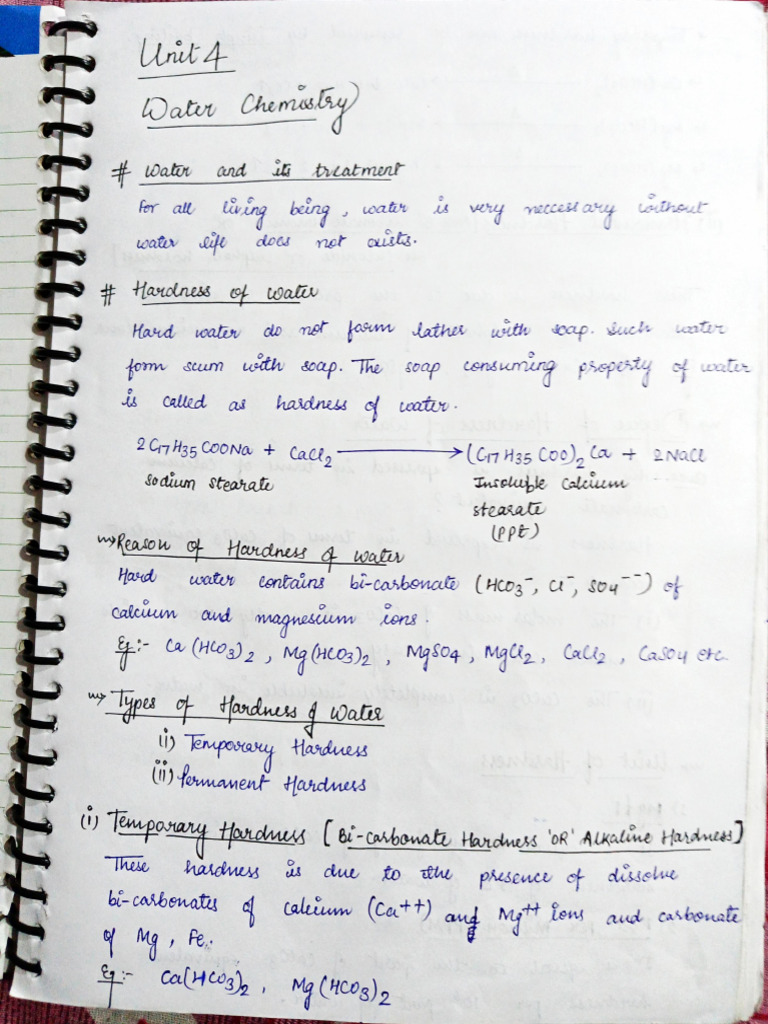 Unit 4
Water Chemistry
# Water and its treatment
For all living being, water is very neccessary without
water life does not exists.
# Hardness of water
Hard water do not form lather with soap. Such water
form scum with soap. The soap consuming property of water
is called as hardness of water.
2C17H35COONa + CaCl2 → (C17H35COO)2Ca + 2NaCl
Sodium stearate Insoluble Calcium
stearate
(PPt)
⇝ Reason of Hardness of Water
Hard water contains bi-carbonate (HCO3-, Cl-, SO4--) of
calcium and magnesium ions.
Eg:- Ca(HCO3)2, Mg(HCO3)2, MgSO4, MgCl2, CaCl2, CaSO4 etc.
⇝ Types of Hardness of Water
(i) Temporary Hardness
(ii) Permanent Hardness
(i) Temporary Hardness [Bi-carbonate Hardness 'OR' Alkaline Hardness]
These hardness is due to the presence of dissolve
bi-carbonates of calcium (Ca++) and Mg++ ions and carbonate
of Mg, Fe.
Eg:- Ca(HCO3)2, Mg(HCO3)2